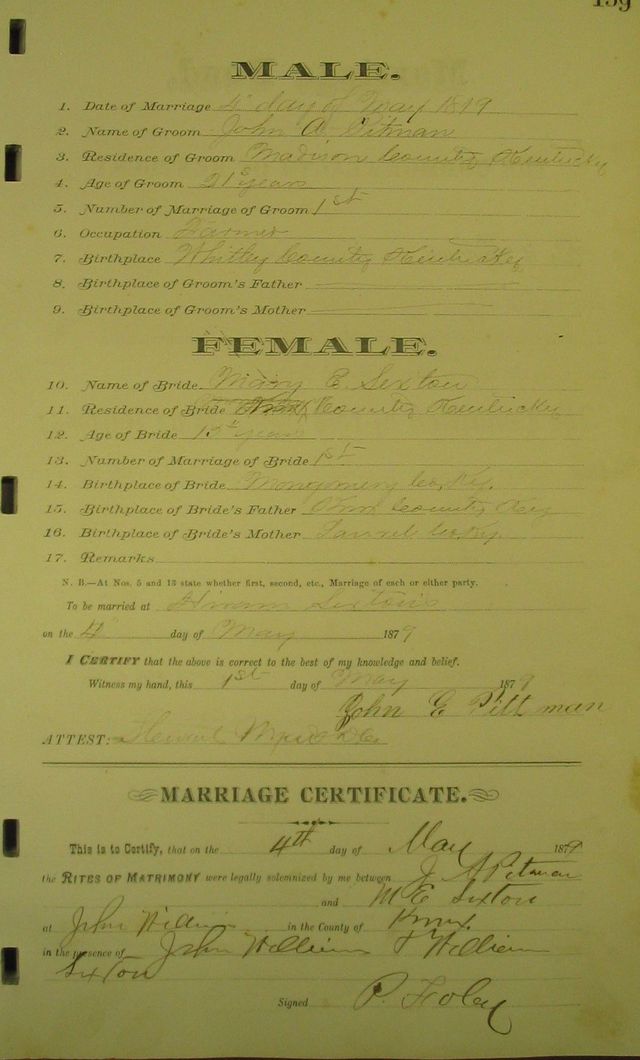 159
MALE.
1. Date of Marriage 4" day of May 1879
2. Name of Groom John A Pitman
3. Residence of Groom Madison County Kentucky
4. Age of Groom 21 years
5. Number of Marriage of Groom 1st
6. Occupation Farmer
7. Birthplace Whitley County Kentucky
8. Birthplace of Groom's Father
9. Birthplace of Groom's Mother
FEMALE.
10. Name of Bride Mary E. Sexton
11. Residence of Bride Knox County Kentucky
12. Age of Bride years
13. Number of Marriage of Bride 1st
14. Birthplace of Bride Montgomery Co. Ky.
15. Birthplace of Bride's Father County Key
16. Birthplace of Bride's Mother Laurel Co Ky
17. Remarks
N. B.—At Nos. 5 and 13 state whether first, second, etc., Marriage of each or either party.
To be married at Hiram Sexton's
on the 4" day of May 1879
I CERTIFY that the above is correct to the best of my knowledge and belief.
Witness my hand, this 1st day of May 1879
John E Pittman
ATTEST:
MARRIAGE CERTIFICATE.
This is to Certify, that on the 4th day of May 1879
the RITES OF MATRIMONY were legally solemnized by me between J. A Pitman
and M E Sexton
at John Williams in the County of Knox
in the presence of John Williams & William
Sexton
Signed P. Foley